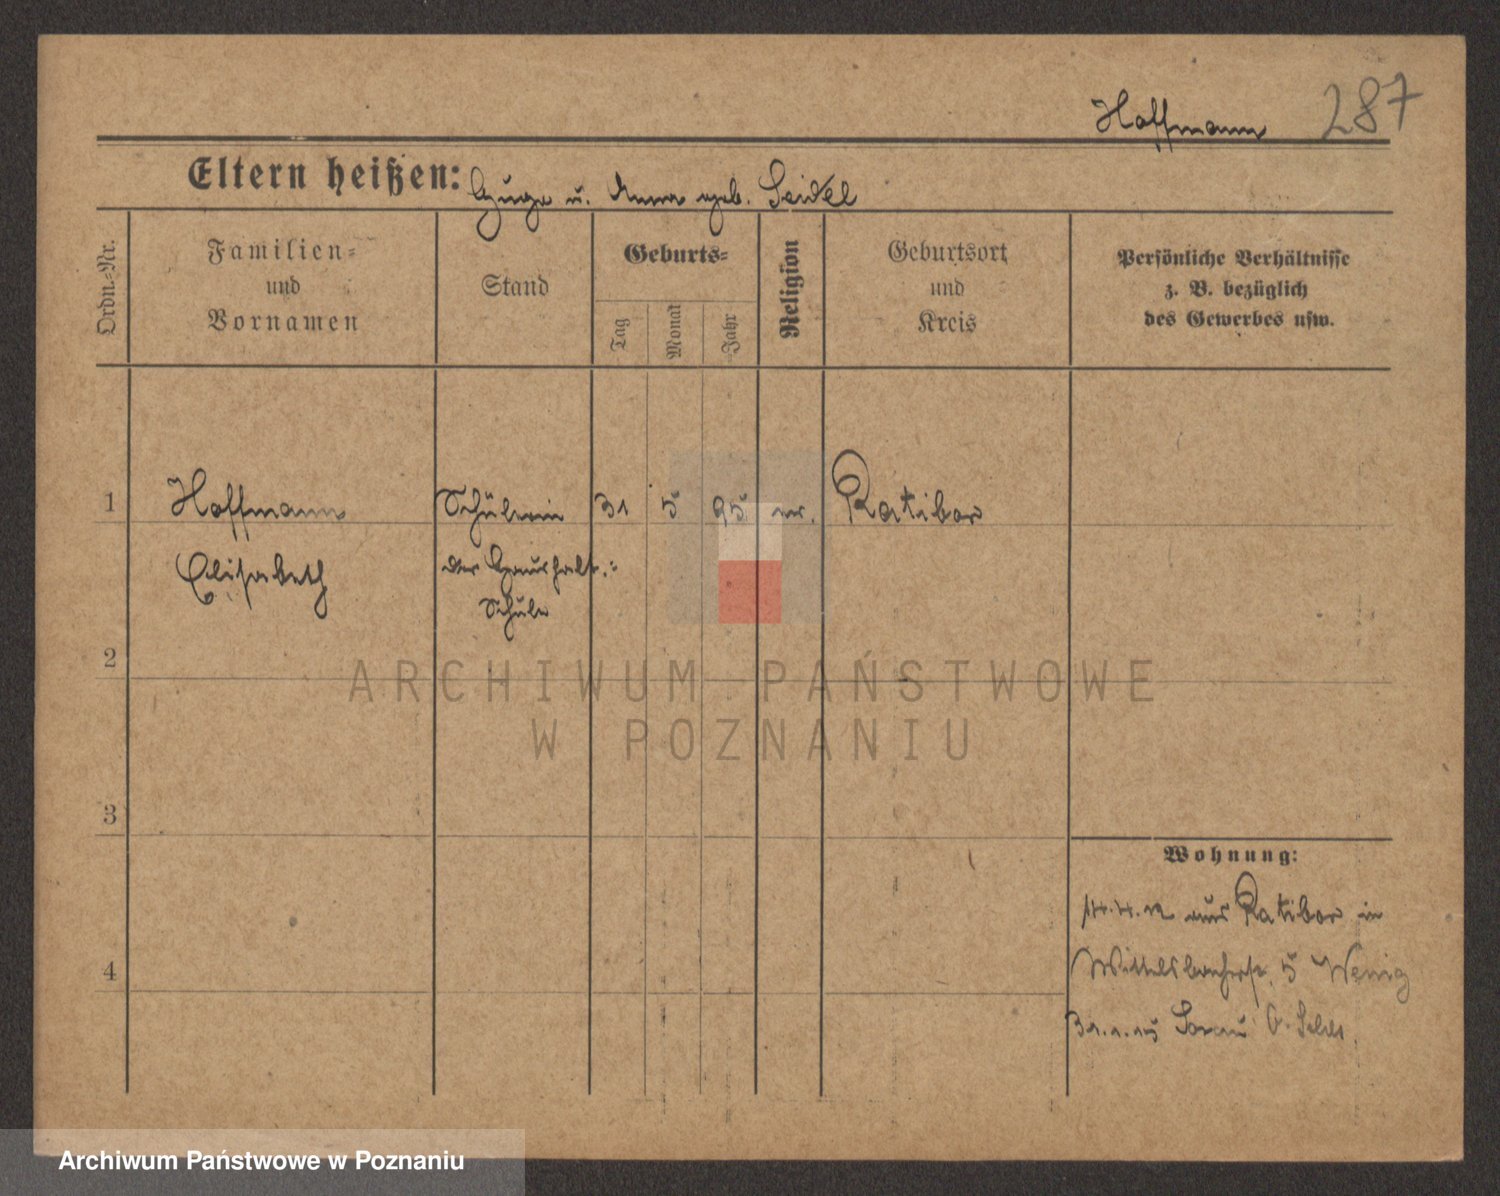 Hoffmann 287
Eltern heißen: Hugo u. Anna geb. Seidel
Ordn.-Nr.
Familien-
und
Vornamen
Stand
Geburts-
Tag
Monat
Jahr
Religion
Geburtsort
und
Kreis
Persönliche Verhältnisse
z. B. bezüglich
des Gewerbes usw.
1 Hoffmann Schülerin 31 5 95 ev. Ratibor
Elisabeth der Haushalt.-
Schule
2
3
4
Wohnung:
aus Ratibor in
Wittelsbacherstr. 5 Wenig
31.1.15 O. Schles
ARCHIWUM PAŃSTWOWE
W POZNANIU
Archiwum Państwowe w Poznaniu